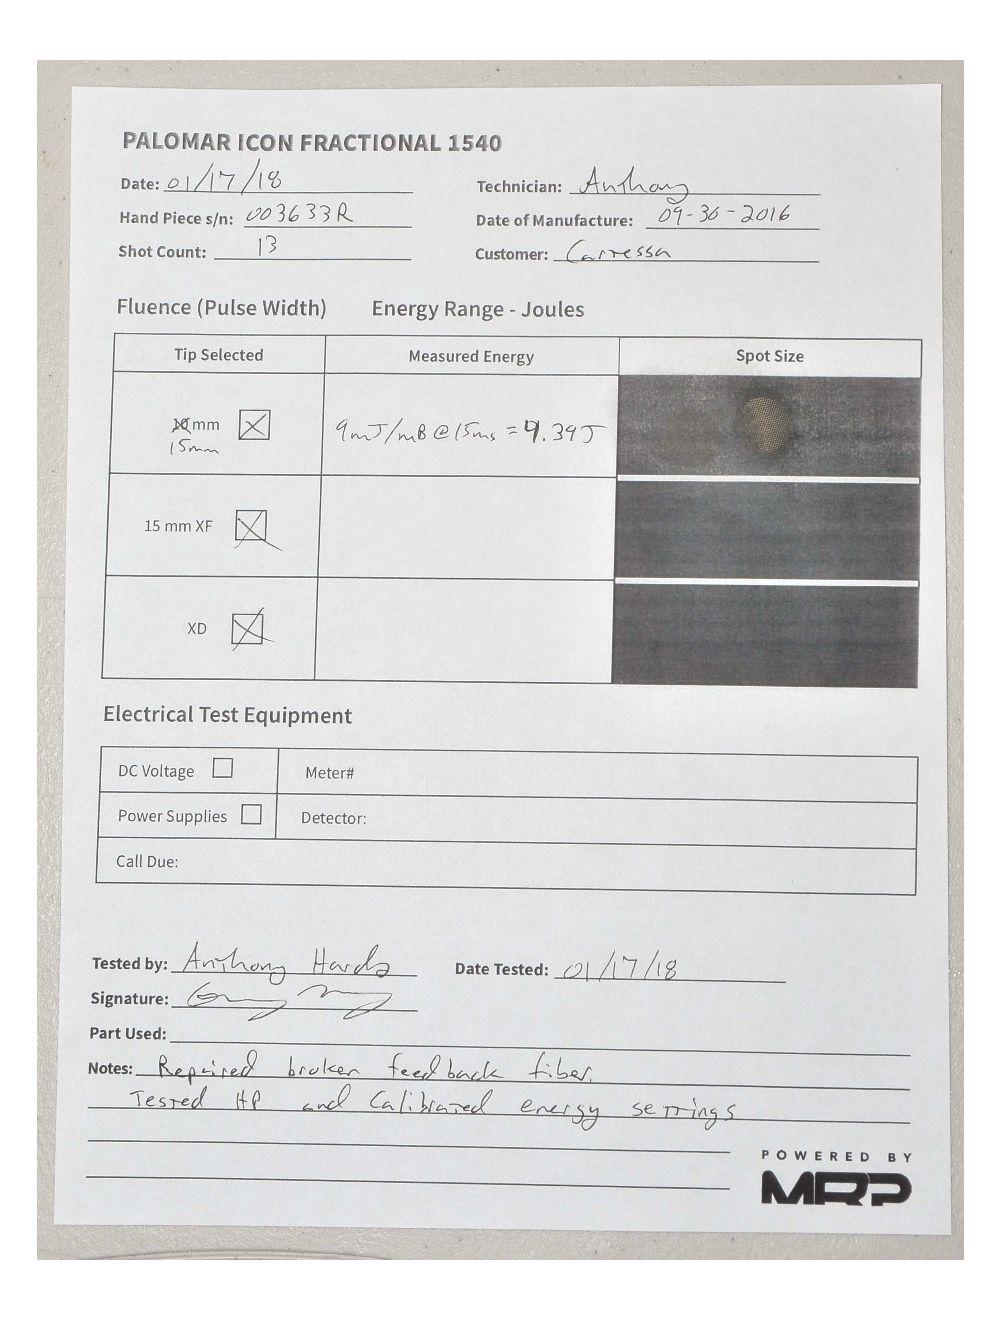 PALOMAR ICON FRACTIONAL 1540
Date: 01/17/18 Technician: Anthony
Hand Piece s/n: 003633R Date of Manufacture: 09-30-2016
Shot Count: 13 Customer: Carressa
Fluence (Pulse Width) Energy Range - Joules
Tip Selected Measured Energy Spot Size
10 mm
15mm
9mJ/mB @ 15ms = 9.39J
15 mm XF
XD
Electrical Test Equipment
DC Voltage Meter#
Power Supplies Detector:
Call Due:
Tested by: Anthony Date Tested: 01/17/18
Signature:
Part Used:
Notes: Repaired broken feedback fiber.
Tested HP and Calibrated energy settings
POWERED BY
MRP